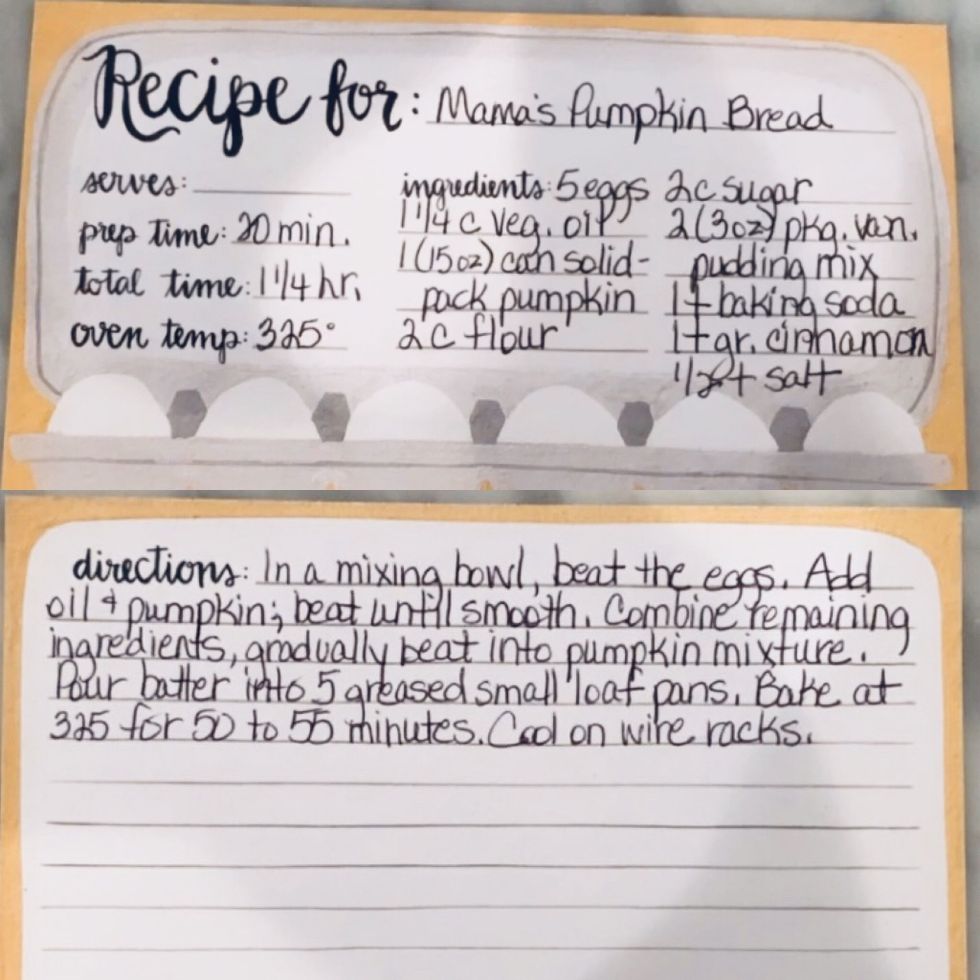 Recipe for: Mama's Pumpkin Bread
serves:
prep time: 20 min.
total time: 1 1/4 hr.
oven temp: 325°
ingredients: 5 eggs
1 1/4 c veg. oil
1 (15 oz) can solid-
pack pumpkin
2 c flour
2c sugar
2 (3oz) pkg. van.
pudding mix
1 t baking soda
1 t gr. cinnamon
1/2 t salt
directions: In a mixing bowl, beat the eggs. Add
oil & pumpkin; beat until smooth. Combine remaining
ingredients, gradually beat into pumpkin mixture.
Pour batter into 5 greased small loaf pans. Bake at
325 for 50 to 55 minutes. Cool on wire racks.